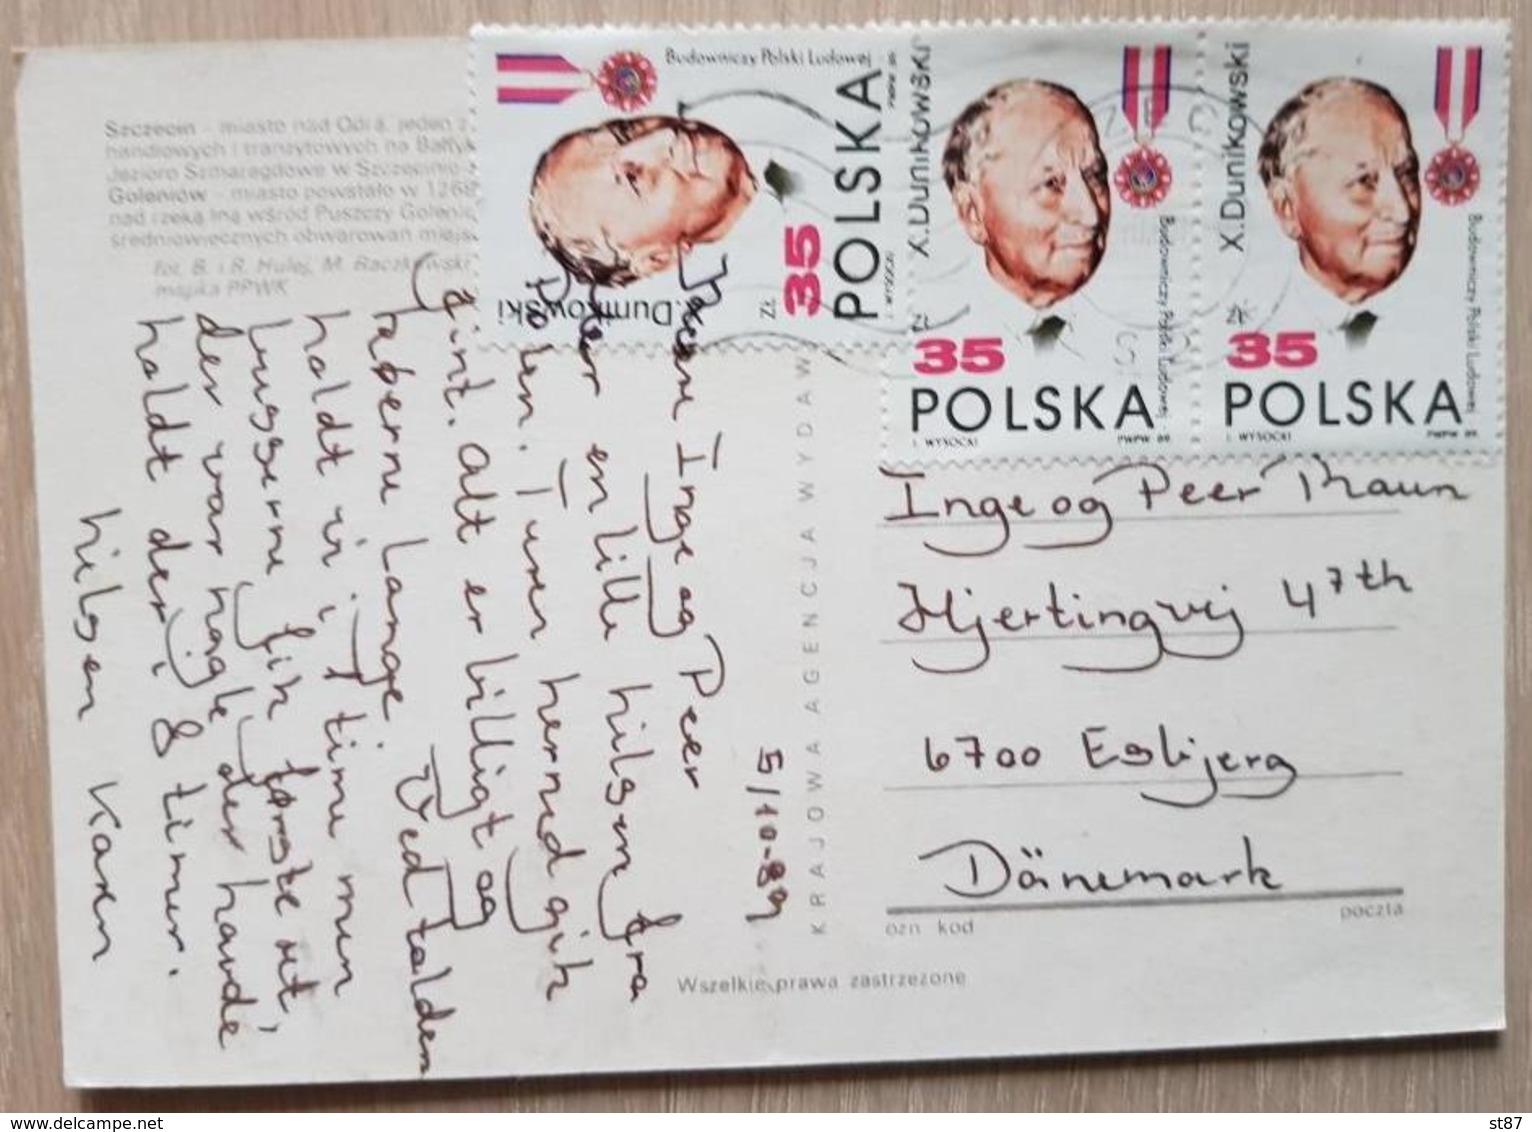 Szczecin - miasto nad Odrą, jeden z
handlowych i tranzytowych na Bałtyk
Jezioro Szmaragdowe w Szczecinie-
Goleniów - miasto powstało w 1268
nad rzeką Iną wśród Puszczy Goleniow
średniowiecznych obwarowań miejs
fot. B. i R. Hulej, M. Raczkowski
majka PPWK
Budowniczy Polski Ludowej
X.Dunikowski
35 ZŁ
POLSKA
I. WYSOCKI PWPW 89
X.Dunikowski
Budowniczy Polski Ludowej
35 ZŁ
POLSKA
I. WYSOCKI PWPW 89
X.Dunikowski
Budowniczy Polski Ludowej
35 ZŁ
POLSKA
I. WYSOCKI PWPW 89
5/10-89
Kære Inge og Peer
Her en lille hilsen fra
Polen. Turen herned gik
fint. Alt er billigt og
taberne lange Ved tolden
holdt vi i 1 time men
busserne fik første ret,
der var nogle der havde
holdt der i 8 timer.
hilsen Karen
KRAJOWA AGENCJA WYDAW
Inge og Peer
Hjertingvej 47th
6700 Esbjerg
Dänemark
ozn kod
poczta
Wszelkie prawa zastrzeżone
www.delcampe.net
st87